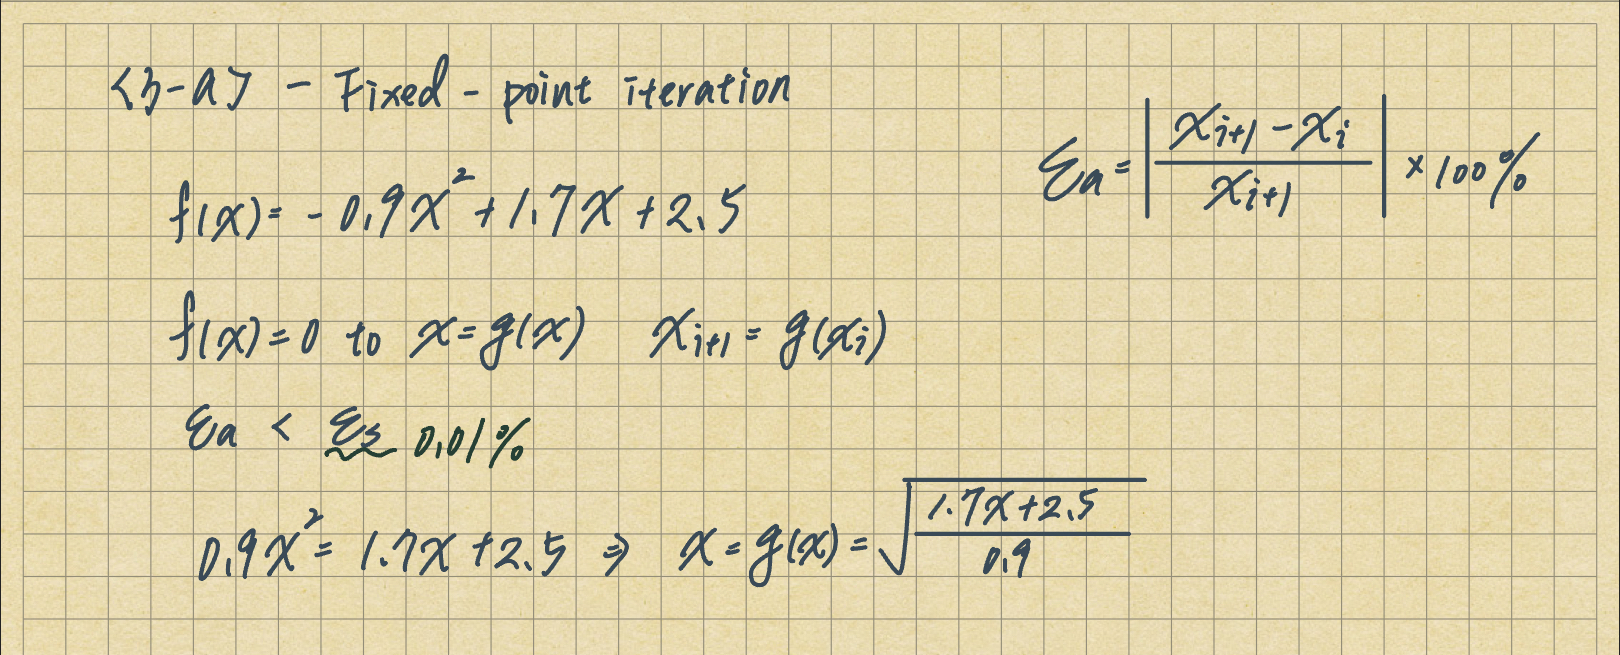 <3-a> - Fixed-point iteration
εa = | (x_{i+1} - x_i) / x_{i+1} | × 100%
f(x) = -0.9x² + 1.7x + 2.5
f(x) = 0 to x = g(x) x_{i+1} = g(x_i)
εa < εs 0.01%
0.9x² = 1.7x + 2.5 ⇒ x = g(x) = √((1.7x + 2.5) / 0.9)